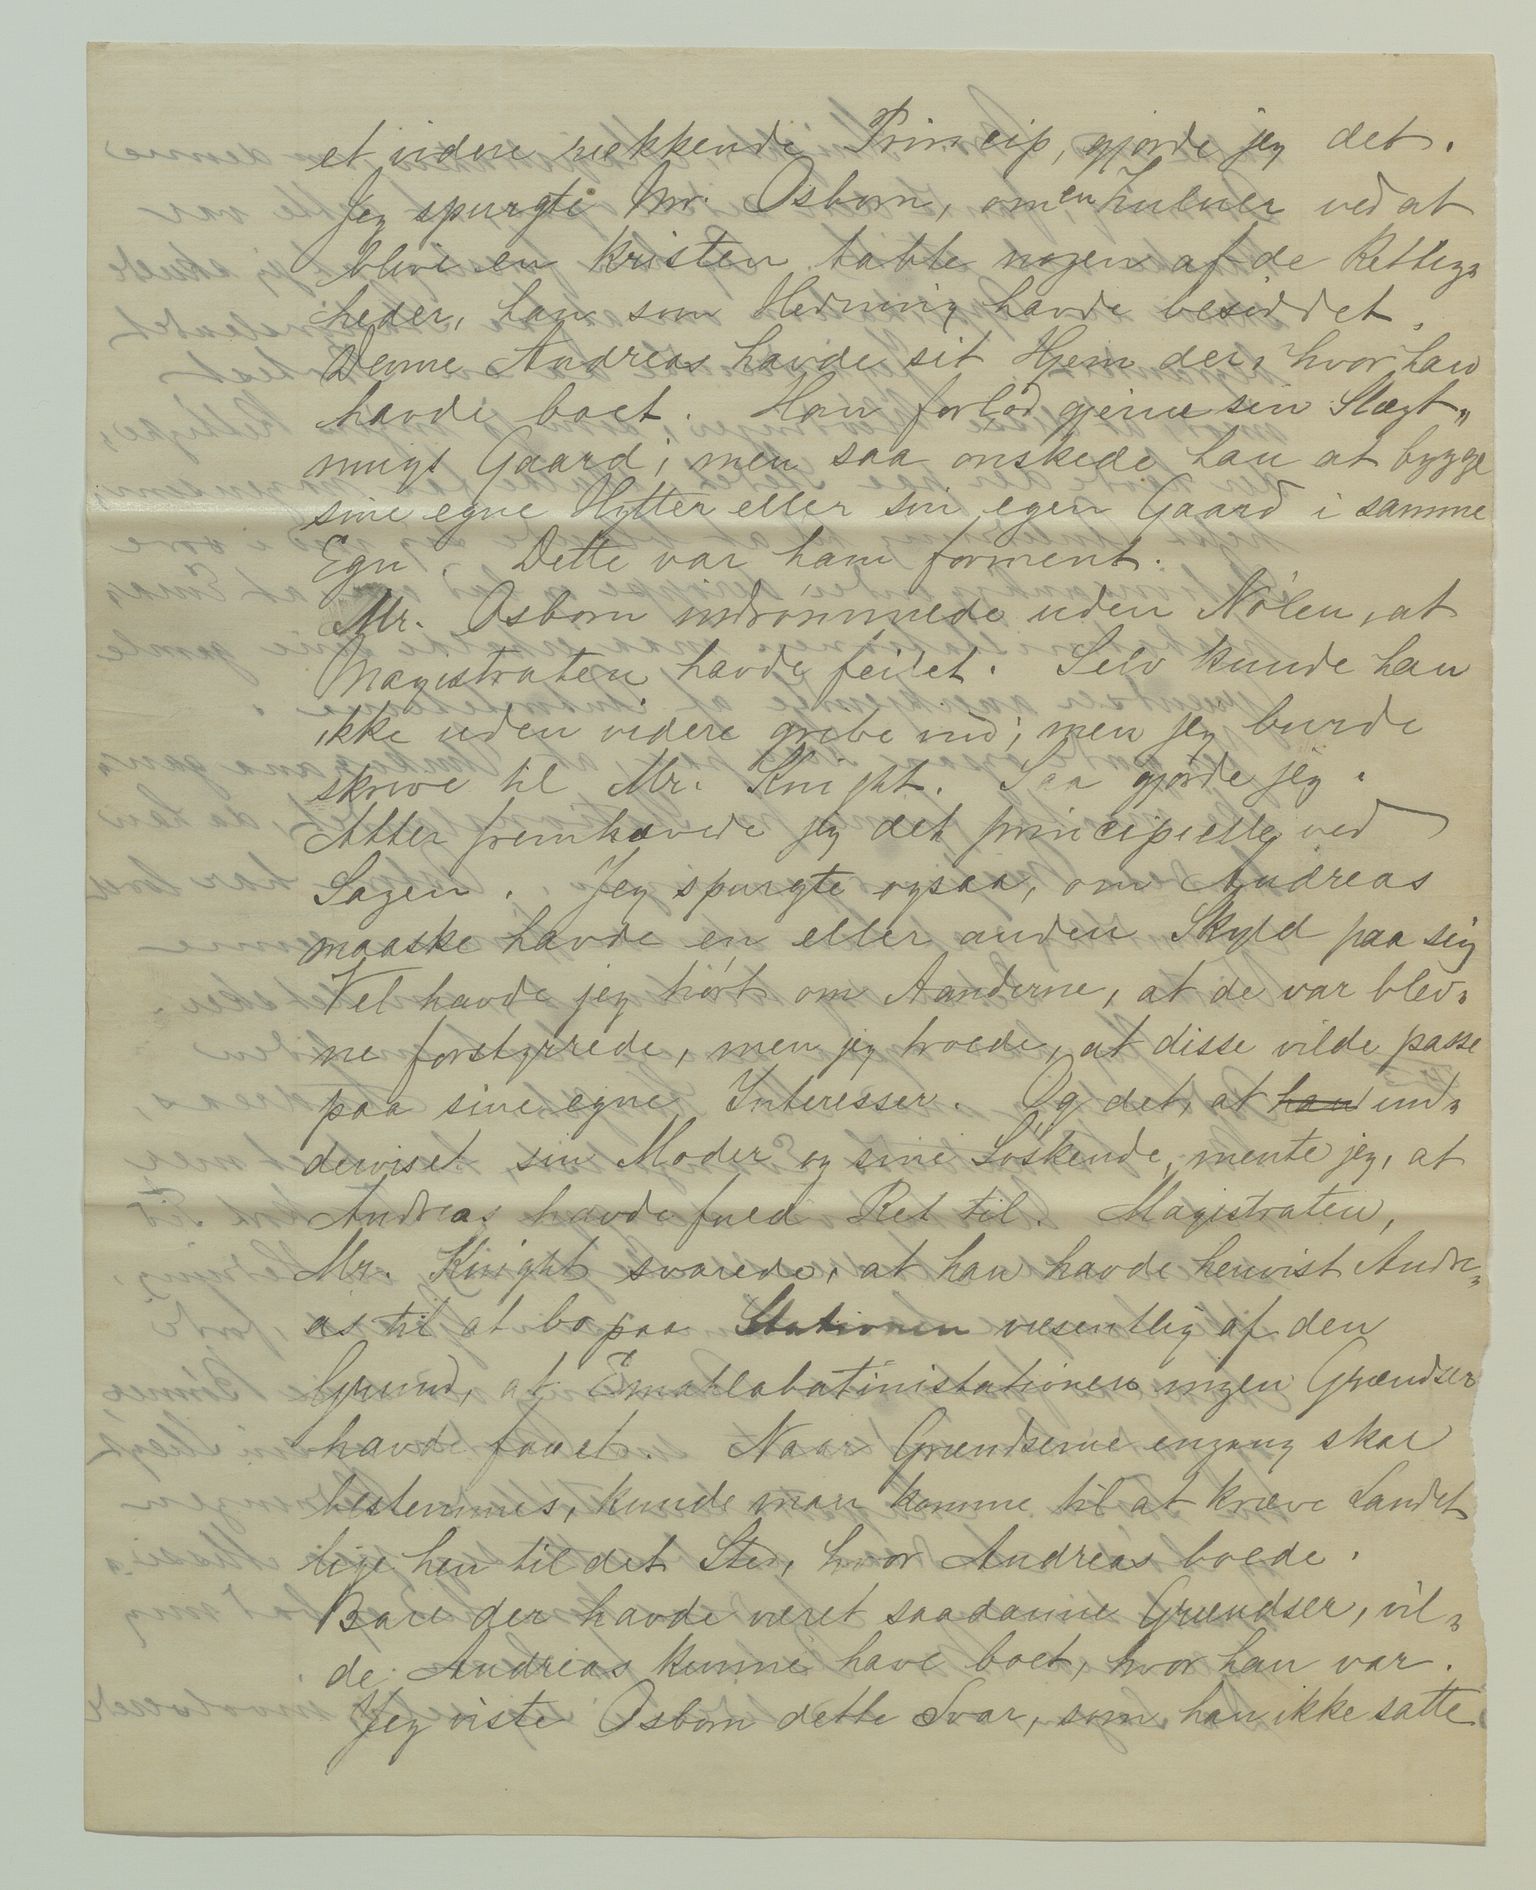 et videre rækkende Princip, gjorde jeg det.
Jeg spurgte Mr. Osborn, om en Zuluer ved at
blive en kristen tabte nogen af de Rettig-
heder, han som Hedning havde besiddet.
Denne Andreas havde sit Hjem der, hvor han
havde boet. Han forlod gjerne sin Slægt-
nings Gaard; men saa ønskede han at bygge
sine egne Hytter eller sin egen Gaard i samme
Egn. Dette var ham forment.
Mr. Osborn indrømmede uden Nølen, at
Magistraten havde feilet. Selv kunde han
ikke uden videre gribe ind; men jeg burde
skrive til Mr. Knight. Saa gjorde jeg.
Atter fremhævede jeg det principielle ved
Sagen. Jeg spurgte ogsaa, om Andreas
maaske havde en eller anden Skyld paa sig
Vel havde jeg hørt om Aanderne, at de var blev-
ne forstyrrede, men jeg troede, at disse vilde passe
paa sine egne Interesser. Og det, at han und-
derviset sin Moder og sine Søskende, mente jeg, at
Andreas havde fuld Ret til. Magistraten,
Mr. Knight svarede, at han havde henvist Andre-
as til at bo paa Stationen væsentlig af den
Grund, at Emahlabatinistationen ingen Grændser
havde faaet. Naar Grændserne engang skal
bestemmes, kunde man komme til at kræve Landet
lige hen til det Sted, hvor Andreas boede.
Bare der havde været saadanne Grændser, vil-
de Andreas kunne have boet, hvor han var.
Jeg viste Osborn dette Svar, som han ikke satte